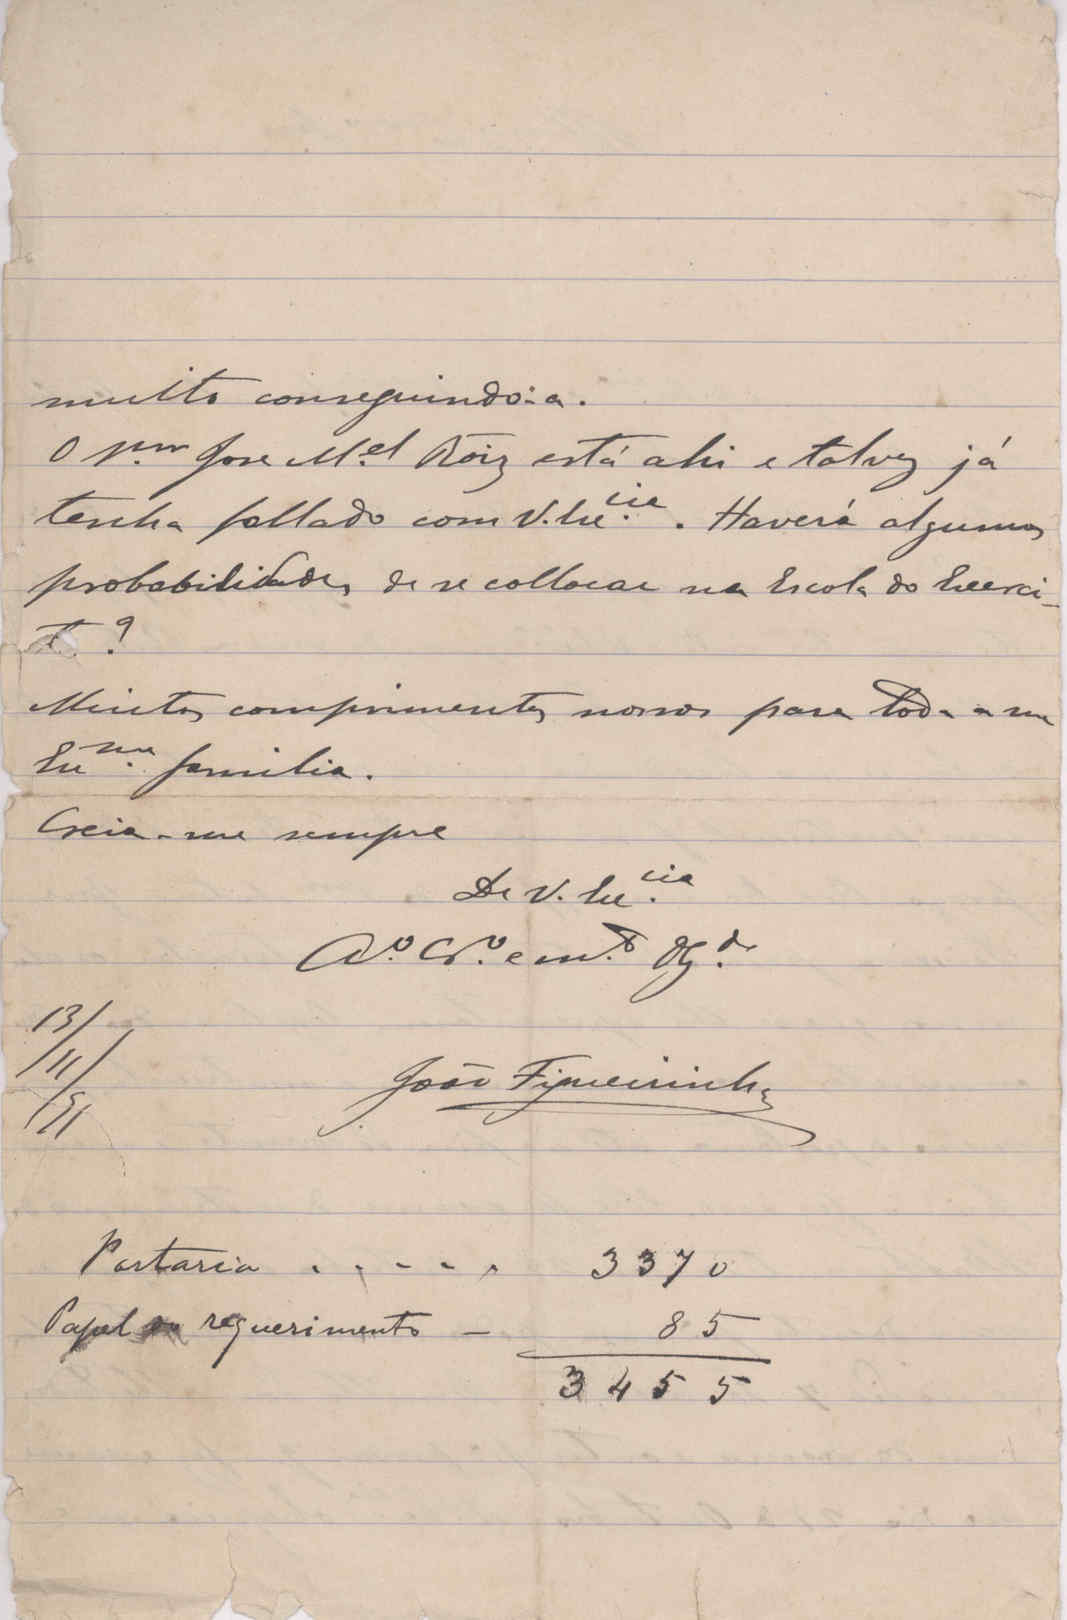 muito conseguindo-a.
O Snr José M.el Roiz está ahi e talvez já
tenha fallado com V. Ex.cia. Haverá algumas
probabilidades de se collocar na Escola do Exerci-
to?
Muitos comprimentos nossos para toda a sua
Ex.ma familia.
Creia-me sempre
De V. Ex.cia
Am.o Cr.o e m.to Obg.do
13/
11/
911
João Figueirinhas
Portaria . . - - - , 3370
Papel do requerimento - 85
3455